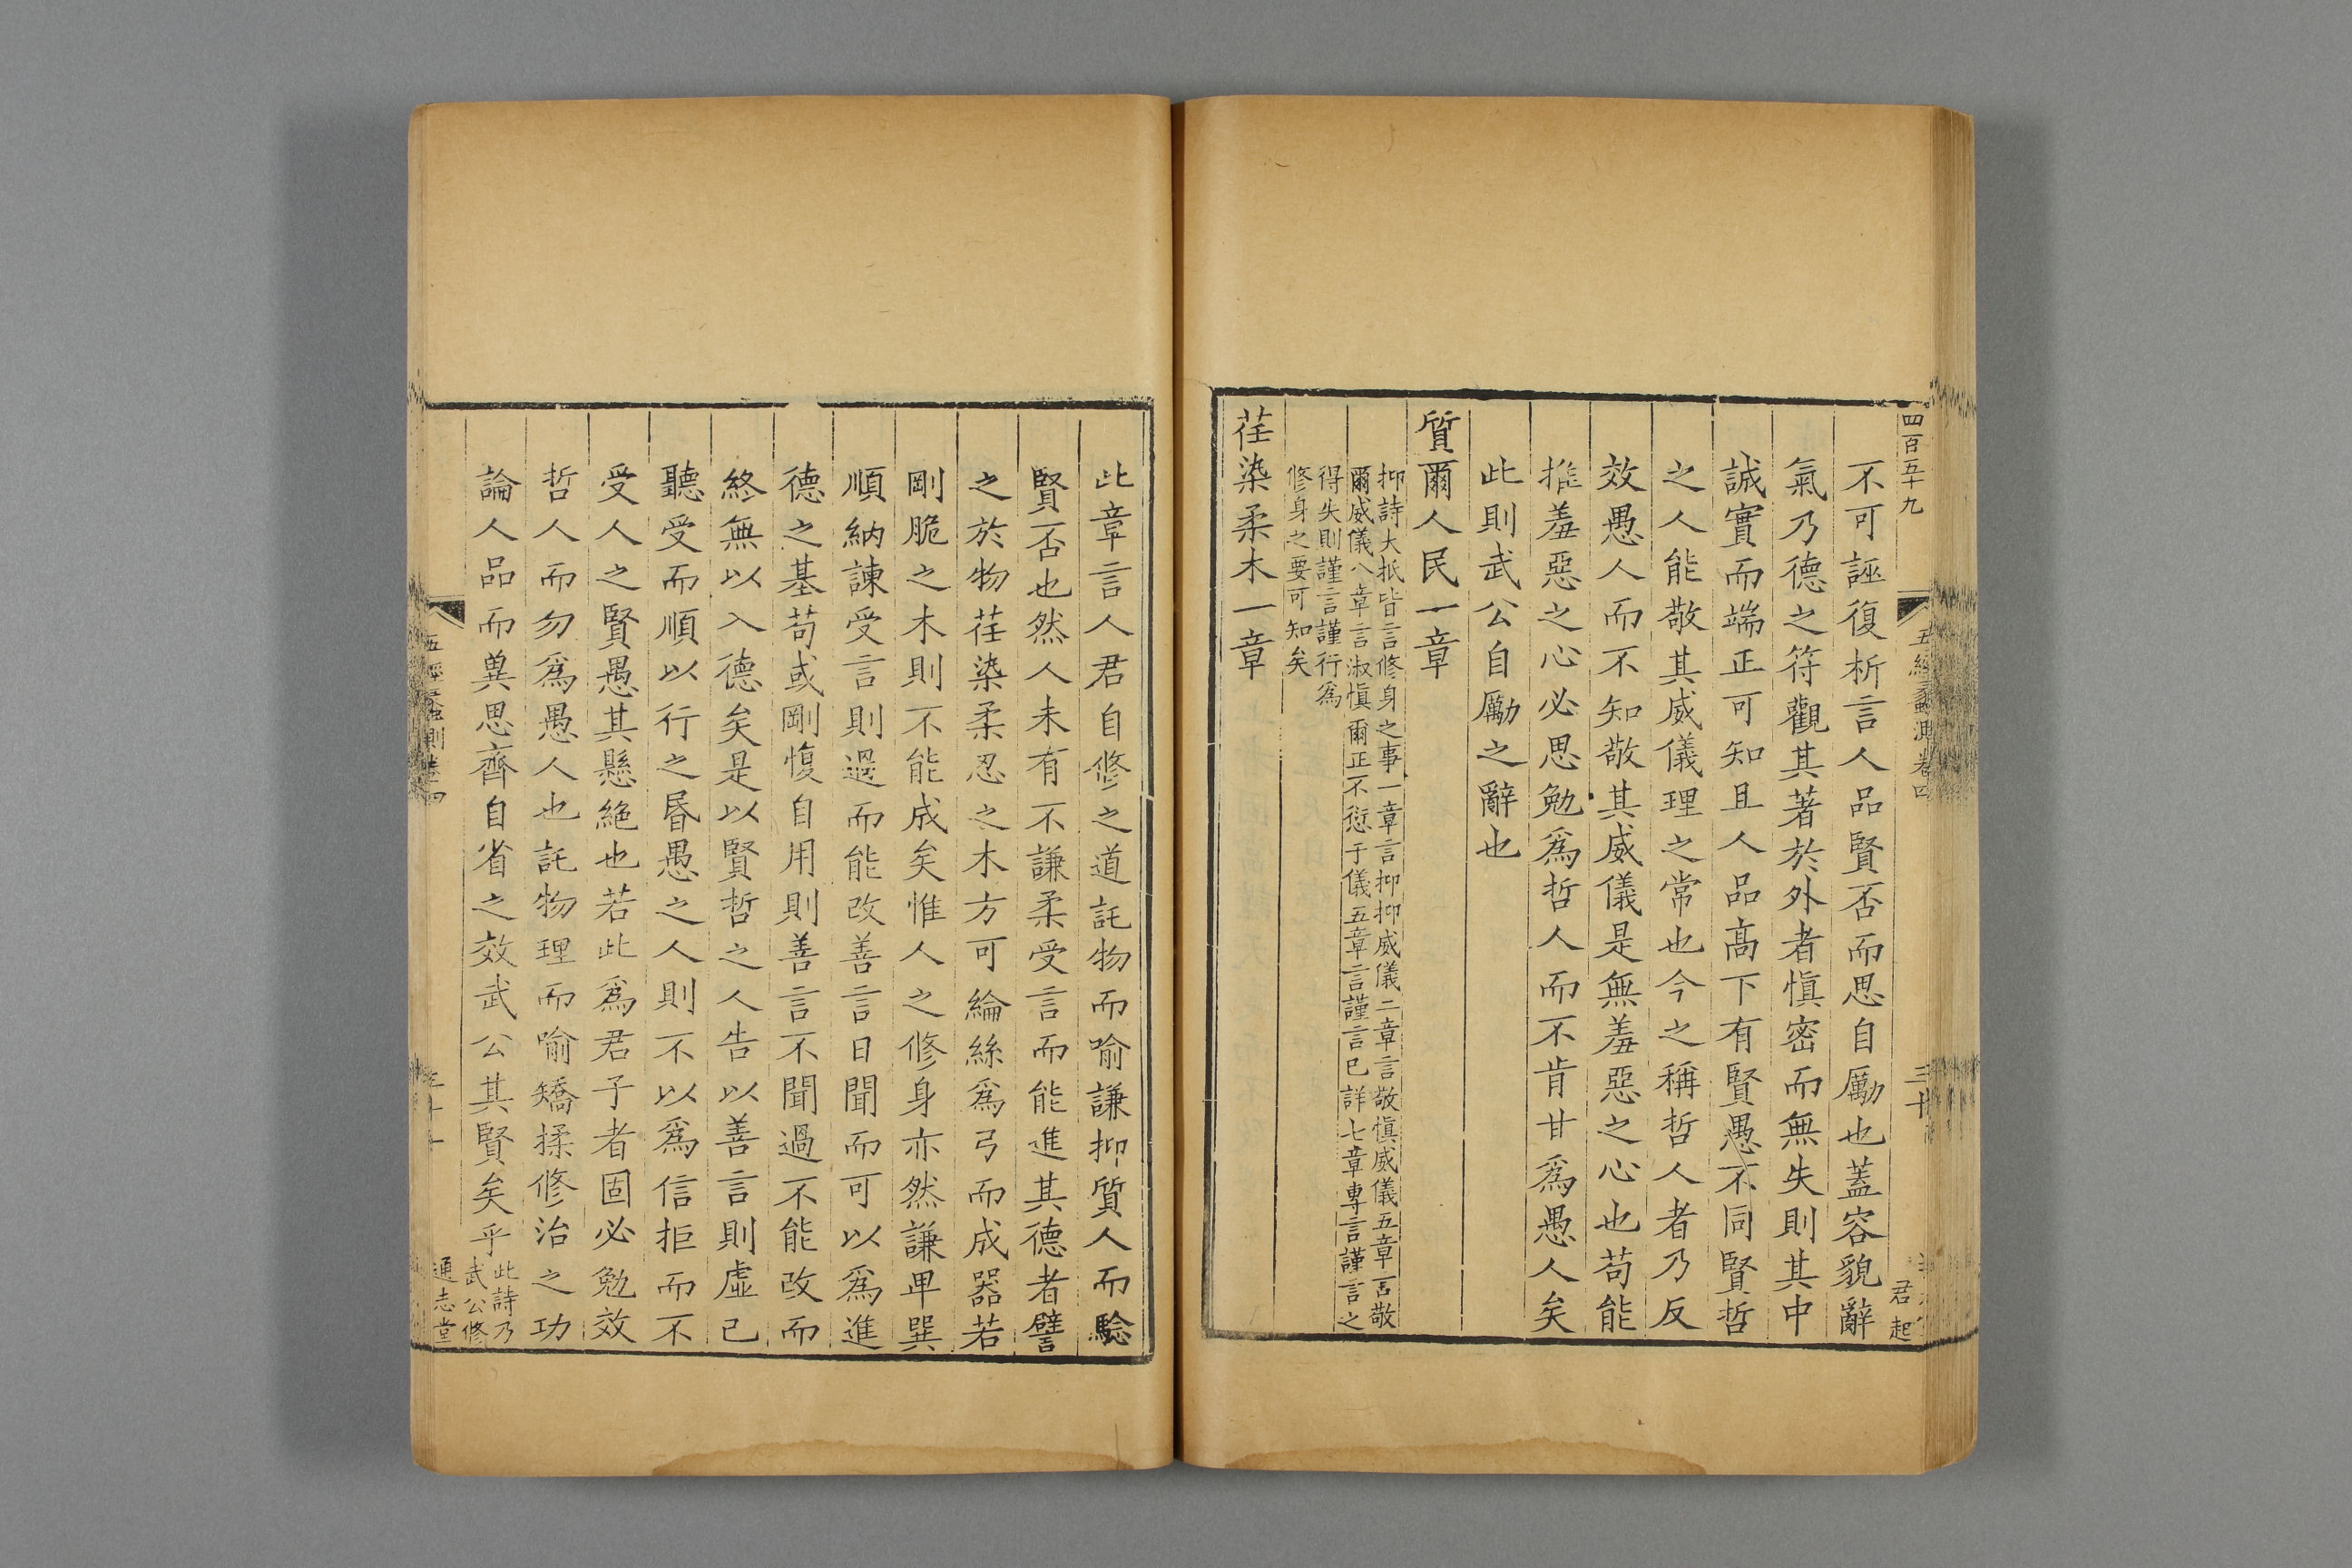 四百五十九
五經蠡測卷四
三十
君起
不可誣復析言人品賢否而思自勵也蓋容貌辭
氣乃德之符觀其著於外者愼密而無失則其中
誠實而端正可知且人品高下有賢愚不同賢哲
之人能敬其威儀理之常也今之稱哲人者乃反
效愚人而不知敬其威儀是無羞惡之心也苟能
推羞惡之心必思勉爲哲人而不肯甘爲愚人矣
此則武公自勵之辭也
質爾人民一章
抑詩大抵皆言修身之事一章言抑抑威儀二章言敬愼威儀五章言敬
爾威儀八章言淑愼爾正不愆于儀五章言謹言已詳七章專言謹言之
得失則謹言謹行爲
修身之要可知矣
荏染柔木一章
此章言人君自修之道託物而喻謙抑質人而驗
賢否也然人未有不謙柔受言而能進其德者譬
之於物荏染柔忍之木方可綸絲爲弓而成器若
剛脆之木則不能成矣惟人之修身亦然謙卑巽
順納諫受言則過而能改善言日聞而可以爲進
德之基苟或剛愎自用則善言不聞過不能改而
終無以入德矣是以賢哲之人告以善言則虛己
聽受而順以行之昬愚之人則不以爲信拒而不
受人之賢愚其懸絶也若此爲君子者固必勉效
哲人而勿爲愚人也託物理而喻矯揉修治之功
論人品而兾思齊自省之效武公其賢矣乎
此詩乃
武公修
五經蠡測卷四
通志堂